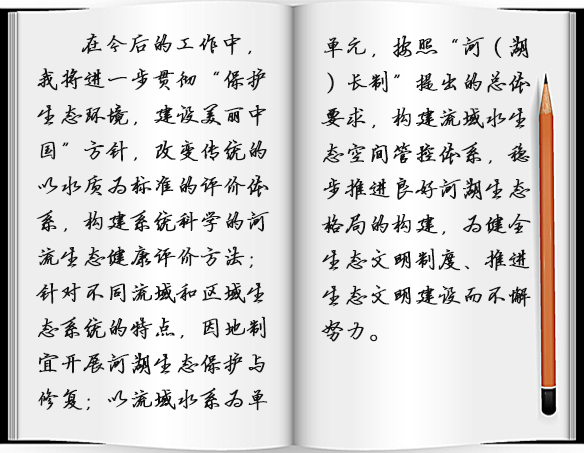 在今后的工作中，
我将进一步贯彻“保护
生态环境，建设美丽中
国”方针，改变传统的
以水质为标准的评价体
系，构建系统科学的河
流生态健康评价方法；
针对不同流域和区域生
态系统的特点，因地制
宜开展河湖生态保护与
修复；以流域水系为单
单元，按照“河（湖
）长制”提出的总体
要求，构建流域水生
态空间管控体系，稳
步推进良好河湖生态
格局的构建，为健全
生态文明制度、推进
生态文明建设而不懈
努力。